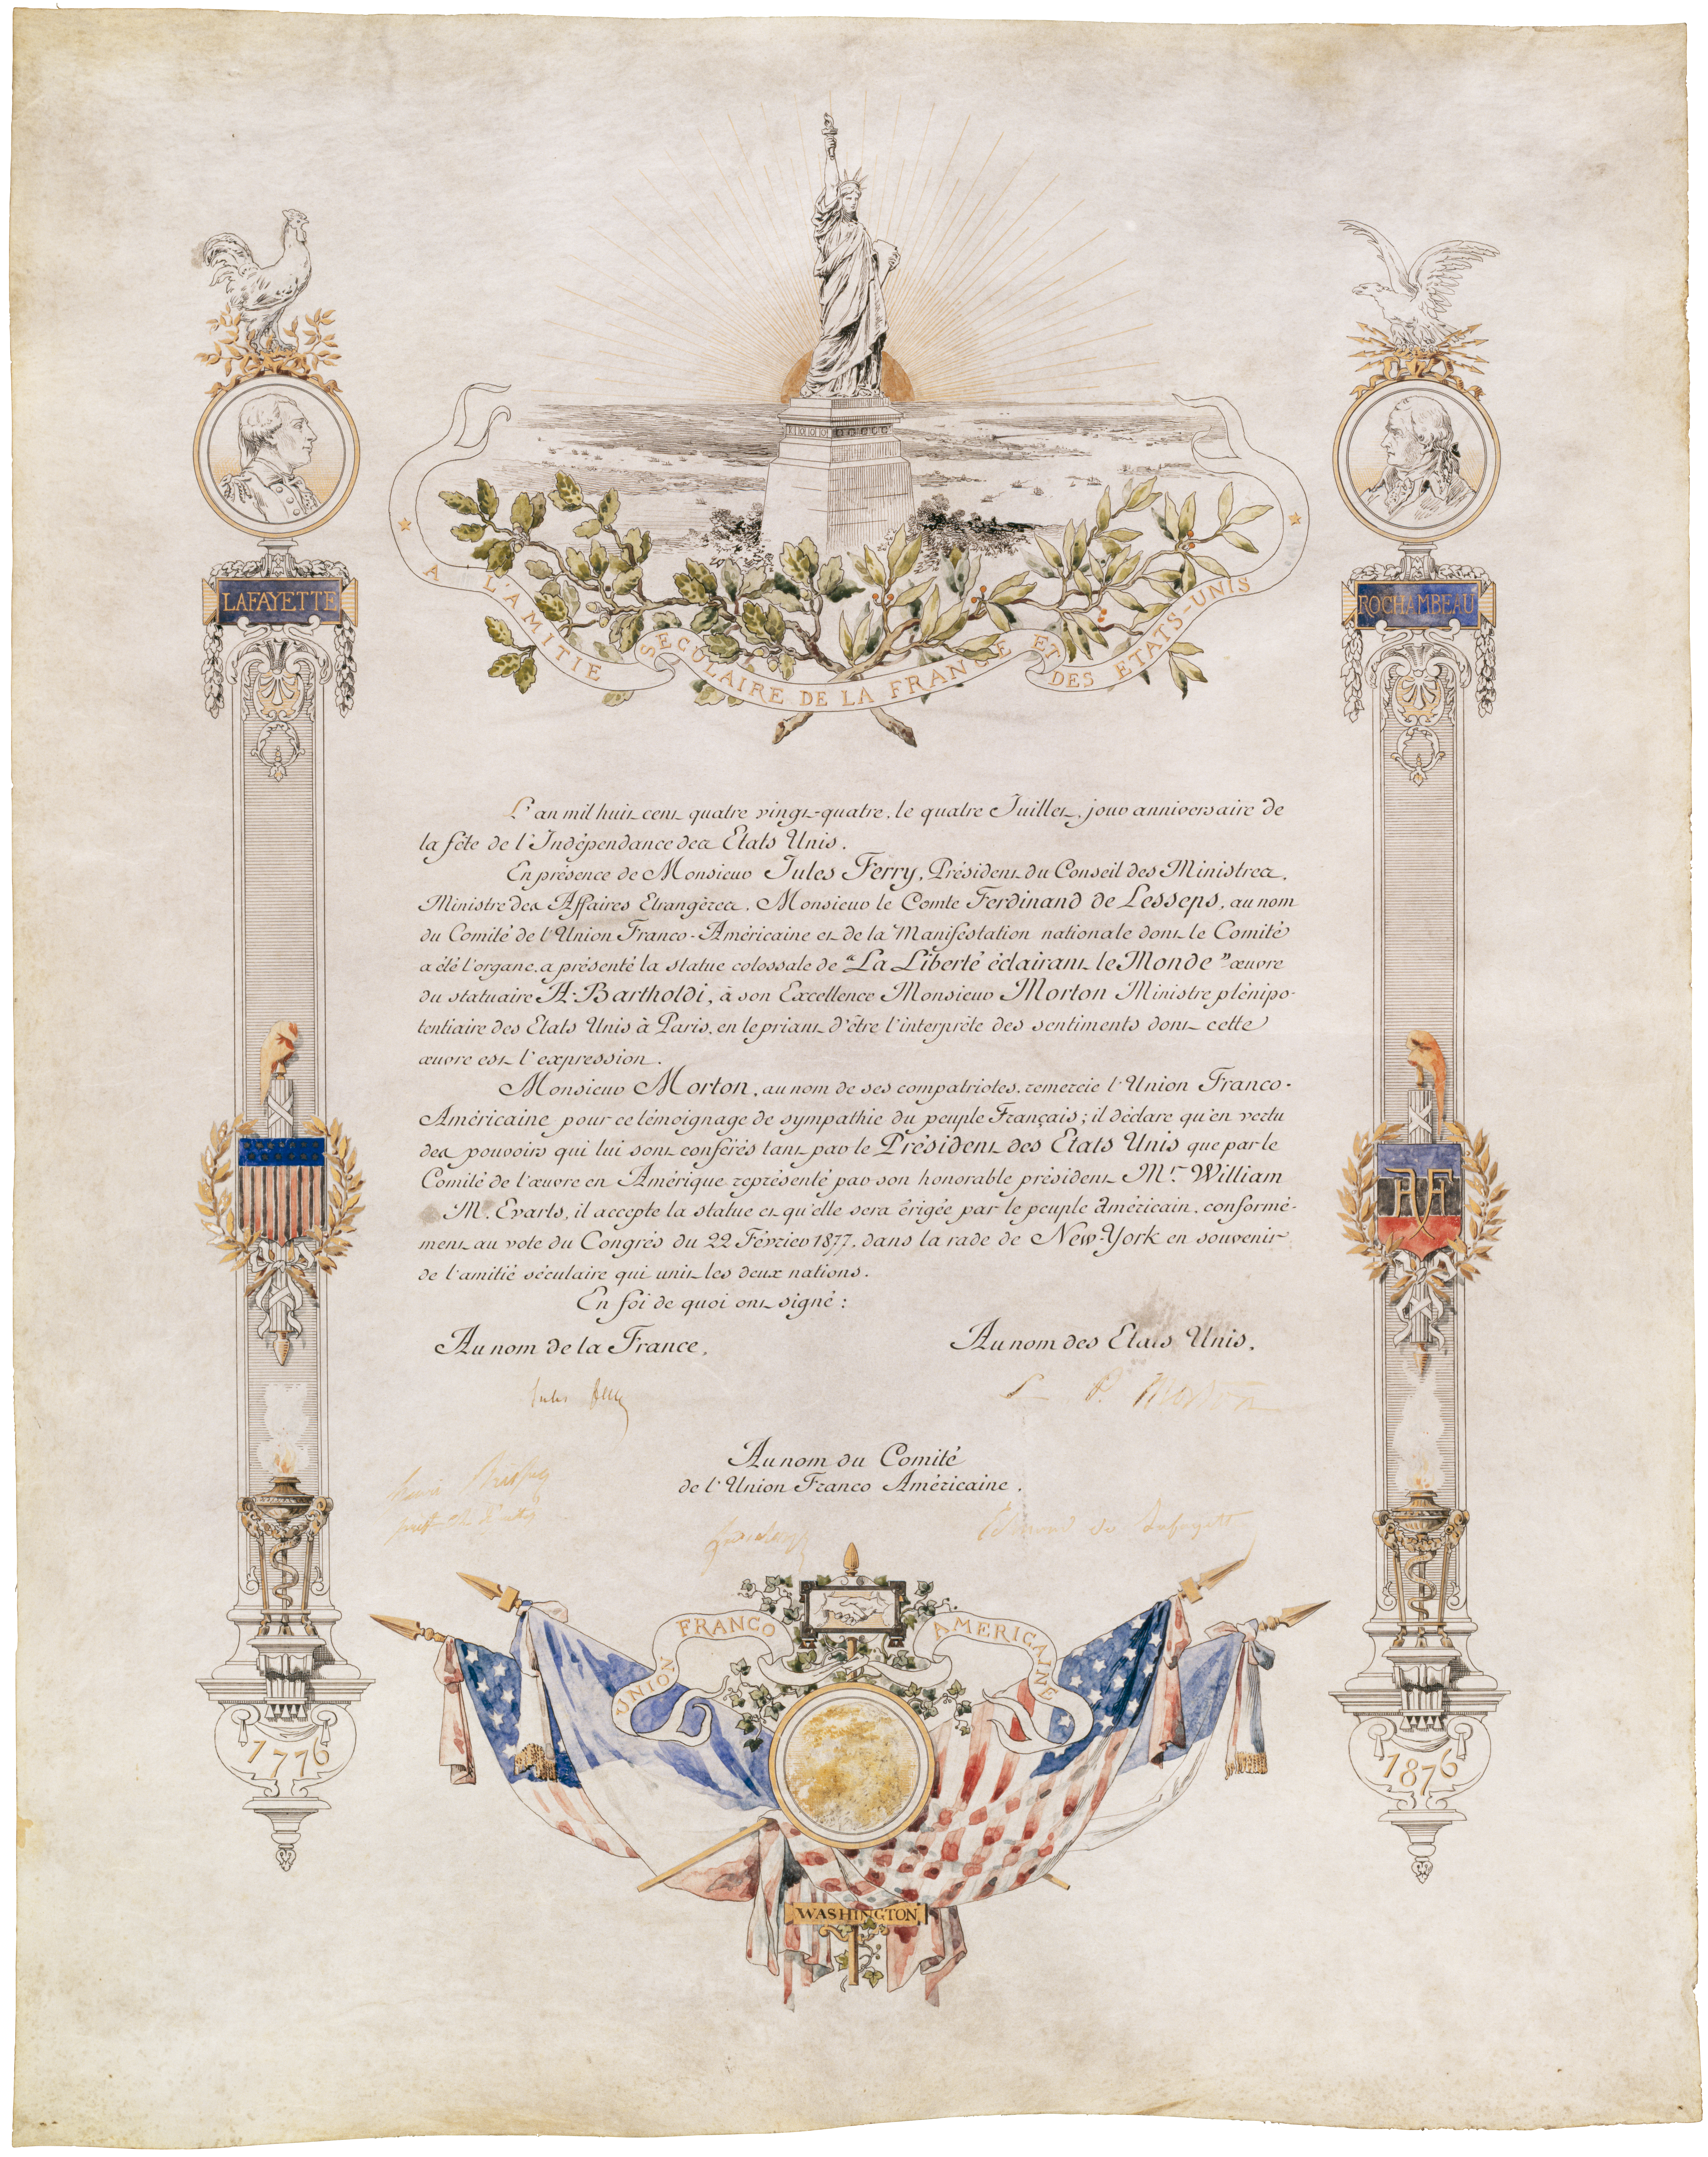 A L'AMITIE SECULAIRE DE LA FRANCE ET DES ETATS-UNIS
LAFAYETTE
ROCHAMBEAU
L'an mil huit cent quatre vingt-quatre, le quatre Juillet, jour anniversaire de
la fête de l'Indépendance des Etats Unis.
En présence de Monsieur Jules Ferry, Président du Conseil des Ministres,
Ministre des Affaires Etrangères, Monsieur le Comte Ferdinand de Lesseps, au nom
du Comité de l'Union Franco-Américaine et de la Manifestation nationale dont le Comité
a été l'organe, a présenté la statue colossale de "La Liberté éclairant le Monde" œuvre
du statuaire A. Bartholdi, à son Excellence Monsieur Morton Ministre plénipo-
tentiaire des Etats Unis à Paris, en le priant d'être l'interprète des sentiments dont cette
œuvre est l'expression.
Monsieur Morton, au nom de ses compatriotes, remercie l'Union Franco-
Américaine pour ce témoignage de sympathie du peuple Français; il déclare qu'en vertu
des pouvoirs qui lui sont conférés tant par le Président des Etats Unis que par le
Comité de l'œuvre en Amérique représenté par son honorable président Mr. William
M. Evarts, il accepte la statue et qu'elle sera érigée par le peuple Américain, conformé-
ment au vote du Congrès du 22 Février 1877, dans la rade de New-York en souvenir
de l'amitié séculaire qui unit les deux nations.
En foi de quoi ont signé:
Au nom de la France,
Au nom des Etats Unis,
Jules Ferry
L P. Morton
Au nom du Comité
de l'Union Franco Américaine.
Henri Brisson
Edmond de Lafayette
UNION FRANCO AMERICAINE
1776
1876
WASHINGTON